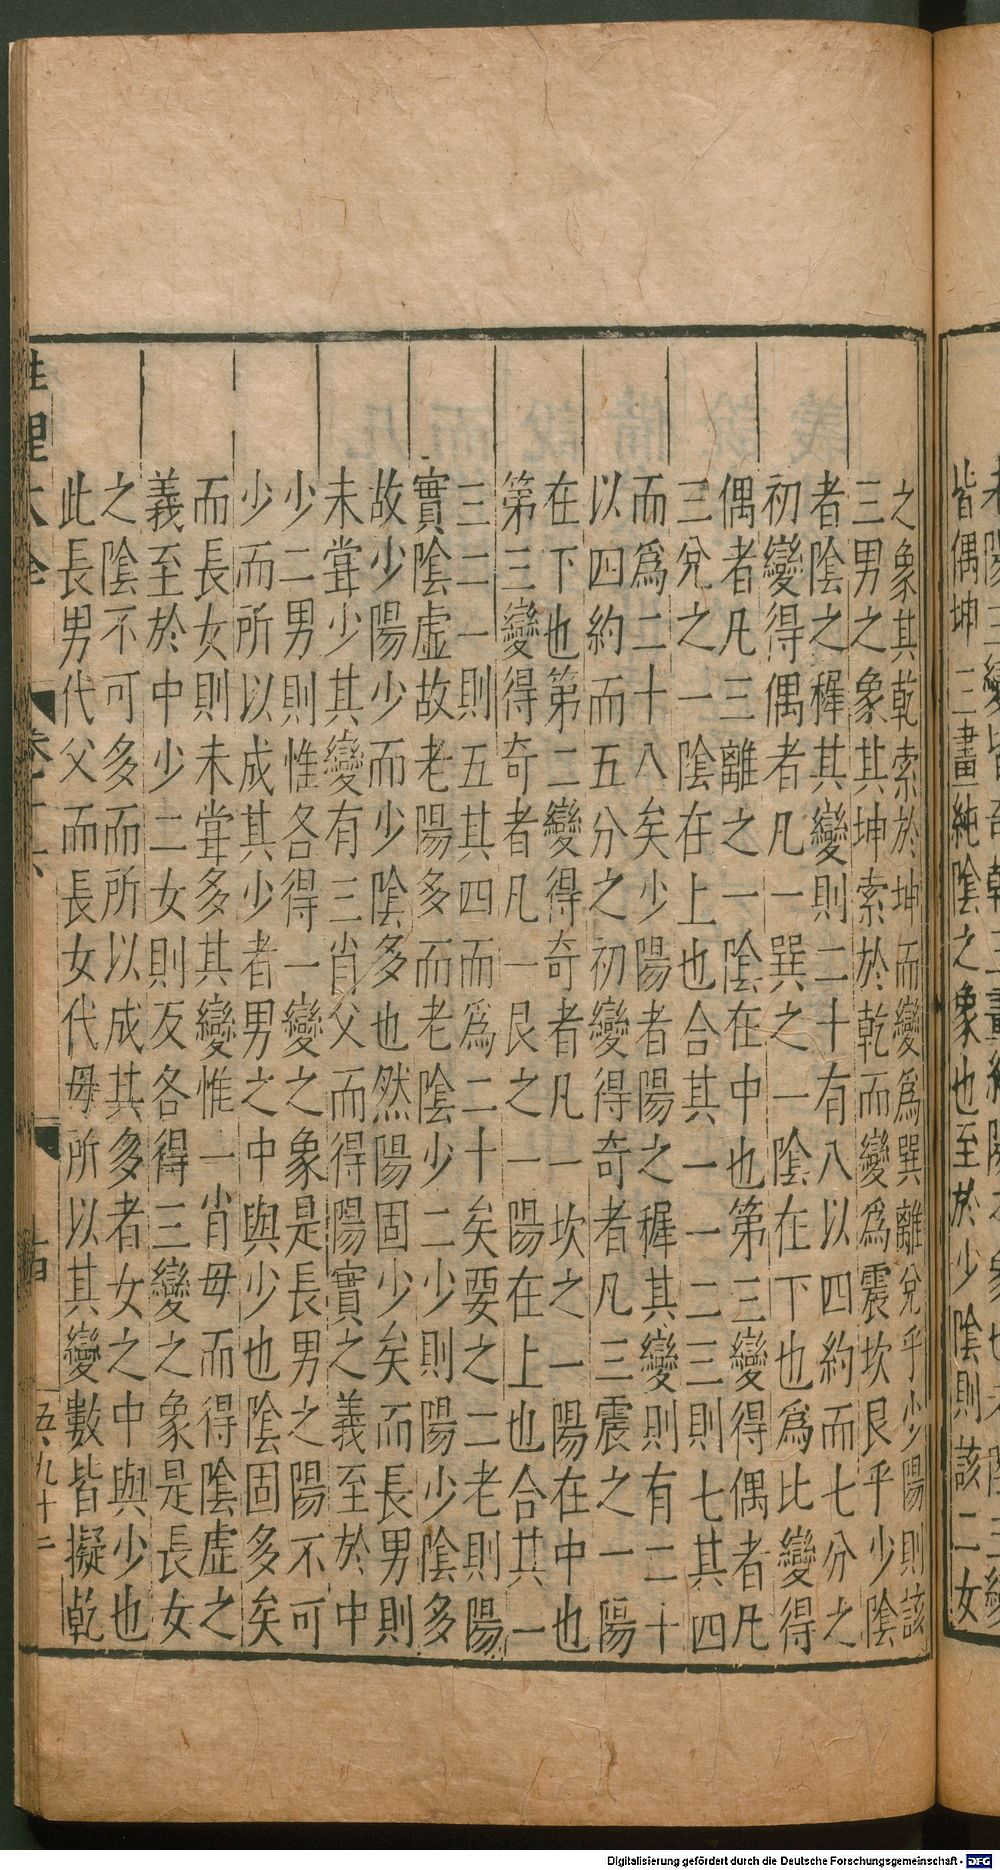 皆偶坤三畫純陰之象也至於少陰則該二女
之象其乾索於坤而變為巽離兌乎少陽則該
三男之象其坤索於乾而變爲震坎艮乎少陰
者陰之穉其變則二十有八以四約而七分之
初變得偶者凡一巽之一陰在下也爲比變得
偶者凡三離之一陰在中也第三變得偶者凡
三兌之一陰在上也合其一一二三則七其四
而爲二十八矣少陽者陽之穉其變則有二十
以四約而五分之初變得奇者凡三震之一陽
在下也第二變得奇者凡一坎之一陽在中也
第三變得奇者凡一艮之一陽在上也合其一
三二一則五其四而爲二十矣要之二老則陽
實陰虛故老陽多而老陰少二少則陽少陰多
故少陽少而少陰多也然陽固少矣而長男則
未甞少其變有三肖父而得陽實之義至於中
少二男則惟各得一變之象是長男之陽不可
少而所以成其少者男之中與少也陰固多矣
而長女則未甞多其變惟一肖母而得陰虛之
義至於中少二女則反各得三變之象是長女
之陰不可多而所以成其多者女之中與少也
此長男代父而長女代母所以其變數皆擬乾
性理大全
五九十二
Digitalisierung gefördert durch die Deutsche Forschungsgemeinschaft - DFG